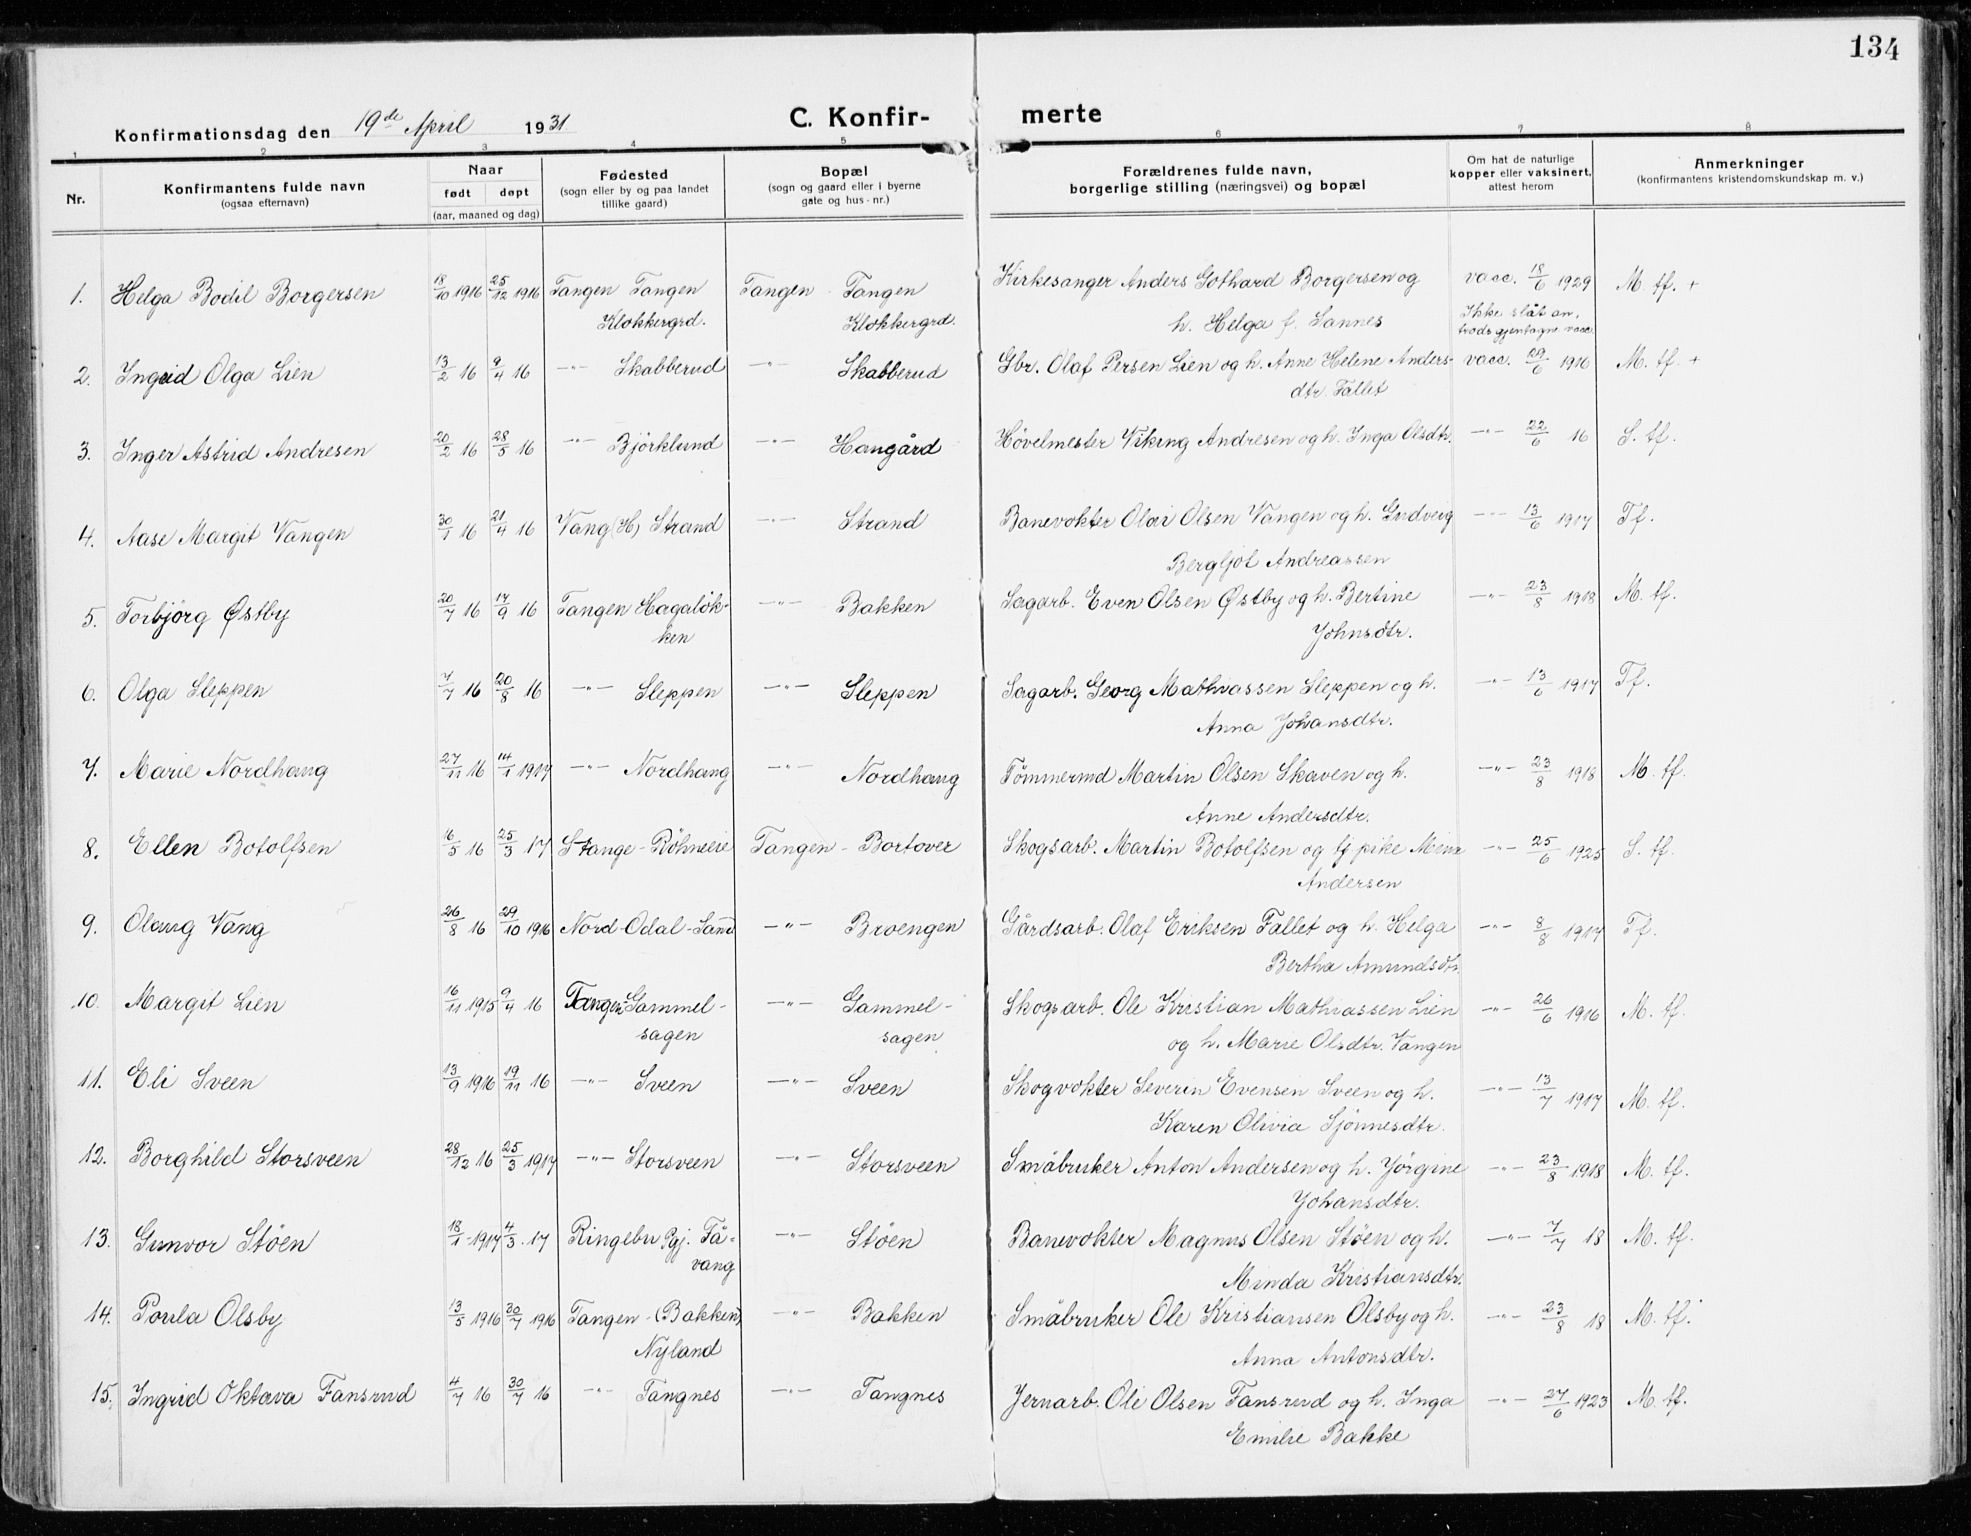 134
Konfirmationsdag den 19de April 1931
C. Konfir-
merte
1 2 3 4 5 6 7 8
Nr.
Konfirmantens fulde navn
(ogsaa efternavn)
Naar
født døpt
(aar, maaned og dag)
Fødested
(sogn eller by og paa landet
tillike gaard)
Bopæl
(sogn og gaard eller i byerne
gate og hus-nr.)
Forældrenes fulde navn,
borgerlige stilling (næringsvei) og bopæl
Om hat de naturlige
kopper eller vaksinert,
attest herom
Anmerkninger
(konfirmantens kristendomskundskap m. v.)
1. Helga Bodil Borgersen 18/10 1916 25/12 1916 Tangen Tangen Tangen Tangen Kirkesanger Anders Gothard Borgersen og vacc. 18/6 1929 M. tf. +
Klokkergrd. Klokkergrd. h. Helga f. Sannes Ikke slåt an,
trods gjentagne vacc.
2. Ingrid Olga Lien 13/2 16 9/4 16 -"- Skabberud -"- Skabberud Gbr. Olaf Persen Lien og h. Anne Helene Anders- vacc. 29/6 1916 M. tf. +
dtr. Fallet
3. Inger Astrid Andresen 20/2 16 28/5 16 -"- Björklund -"- Haugård Høvelmester Viking Andresen og h. Inga Olsdtr. -"- 22/6 16 S. tf.
4. Aase Margit Vangen 30/1 16 21/4 16 Vang (H) Strand -"- Strand Banevokter Olai Olsen Vangen og h. Gudveig -"- 13/6 1917 Tf.
Bergljot Andreassen
5. Torbjörg Østby 20/7 16 17/9 16 Tangen Hagaløk- -"- Bakken Sagarb. Even Olsen Østby og h. Bertine -"- 23/8 1918 M. tf.
ken Johnsdtr.
6. Olga Sleppen 7/7 16 20/8 16 -"- Sleppen -"- Sleppen Sagarb. Georg Mathiassen Sleppen og h. -"- 13/6 1917 Tf.
Anna Johansdtr.
7. Marie Nordhaug 27/11 16 14/1 1917 -"- Nordhaug -"- Nordhaug Tömmermd Martin Olsen Skaven og h. -"- 23/8 1918 M. tf.
Anne Andersdtr.
8. Ellen Botolfsen 16/5 16 25/3 17 Stange - Röhneeie Tangen - Bortover Skogsarb. Martin Botolfsen og tj. pike Mina -"- 25/6 1925 S. tf.
Andersen
9. Olaug Vang 26/8 16 29/10 1916 Nord-Odal-Sand -"- Broengen Gårdsarb. Olaf Eriksen Fallet og h. Helga -"- 8/8 1917 Tf.
Bertha Amundsdtr.
10. Margit Lien 16/11 1915 9/4 16 Tangen-Gammel- -"- Gammel- Skogsarb. Ole Kristian Mathiassen Lien -"- 26/6 1916 M. tf.
sagen sagen og h. Marie Olsdtr. Vangen
11. Eli Sveen 13/9 1916 19/11 16 -"- Sveen -"- Sveen Skogvokter Severin Evensen Sveen og h. -"- 13/7 1917 M. tf.
Karen Olivia Sjönnesdtr.
12. Borghild Storsveen 28/12 16 25/3 1917 -"- Storsveen -"- Storsveen Småbruker Anton Andersen og h. Jörgine -"- 23/8 1918 M. tf.
Johansdtr.
13. Gunvor Stöen 18/1 1917 4/3 17 Ringebu Pgj. Få- -"- Stöen Banevokter Magnus Olsen Stöen og h. -"- 7/7 18 M. tf.
vang Minda Kristiansdtr.
14. Poula Olsby 13/5 1916 20/7 1916 Tangen - (Bakken) -"- Bakken Småbruker Ole Kristiansen Olsby og h. -"- 23/8 18 M. tf.
Nyland Anna Antonsdtr.
15. Ingrid Oktava Fansrud 4/7 16 30/7 16 -"- Tangnes -"- Tangnes Jernarb. Ole Olsen Fansrud og h. Inga -"- 27/6 1923 M. tf.
Emilie Bakke